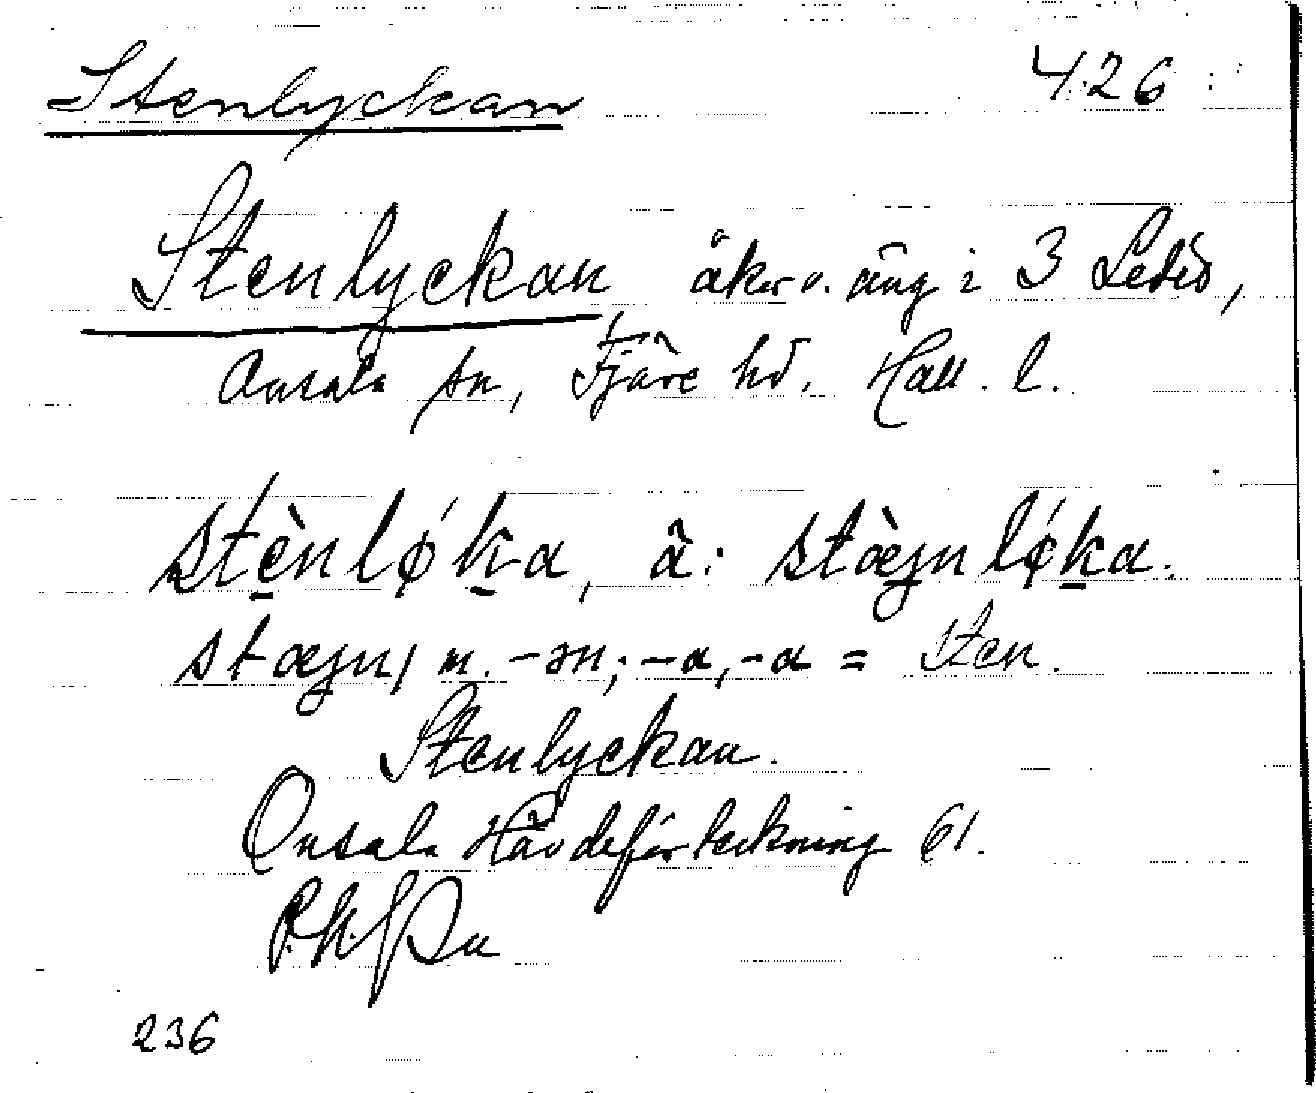 Stenlyckan 4.26
Stenlyckan, åker o. äng i 3
Onsala sn, Fjäre hd. Hall. l.
stènløka, ä: stæjnløka.
stæjn, m. -ən; -a, -a = Sten.
Stenlyckan.
Onsala Hävdeförteckning 61.
P.N.
236